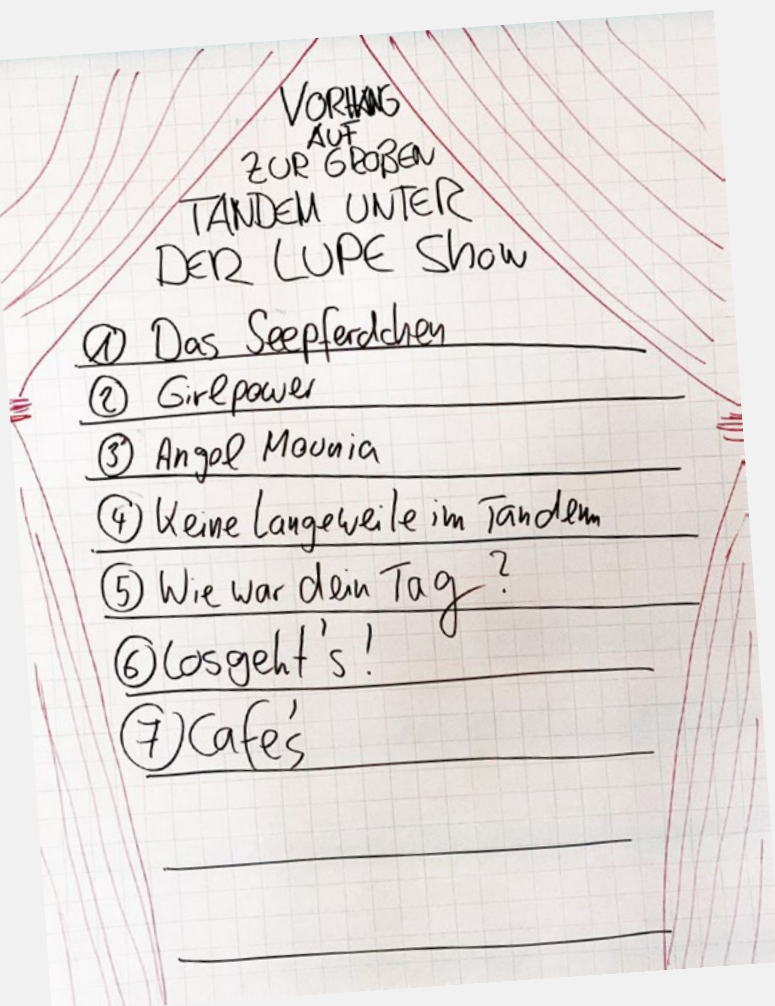 VORHANG
AUF
ZUR GROßEN
TANDEM UNTER
DER LUPE Show
① Das Seepferdchen
② Girlpower
③ Angel Mounia
④ Keine Langeweile im Tandem
⑤ Wie war dein Tag?
⑥ Losgeht's!
⑦ Cafe's